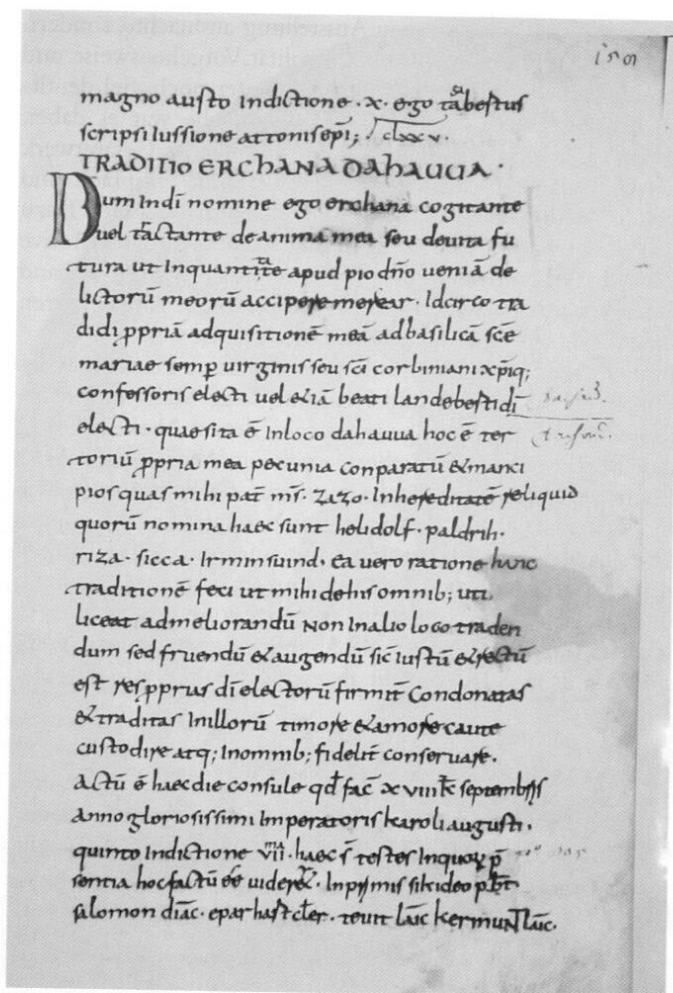 magno austo Indictione · x · ego tabestus
scripsi Iussione attonis epi; clxxv·
TRADITIO ERCHANA DAHAUUA·
Dum Indi nomine ego erchana cogitante
uel tractante de anima mea seu deuita fu
tura ut Inquantitate apud pio dno ueniā de
lictorū meorū accipere merear · Idcirco tra
didi ppriā adquisitionē meā ad basilicā scē
mariae semp uirginis seu sci corbiniani xpiq;
confessoris electi uel &iā beati landeberti di
electi · quae sita ē Inloco dahauua hoc ē ter
toriū ppria mea pecunia conparatū & manci
pios quas mihi pat ms · zazo · Inhereditatē reliquid
quorū nomina haec sunt helidolf · paldrih·
riza · sicca · Irminsuind · ea uero ratione hanc
traditionē feci ut mihi dehis omnib; uti
liceat ad meliorandū Non Inalio loco traden
dum sed fruendū & augendū sic Iustū & rectū
est res pprias di electorū firmit Condonatas
& traditas Inillorū timore & amore caute
custodire atq; Inomnib; fidelit conseruare·
Actū ē haec die consule qd fac xviiii k septembris
Anno gloriosissimi Imperatoris karoli augusti·
quinto Indictione vii ma · haec s testes Inquorum p
sentia hoc factū ēē uider · Inprimis sikideo pbt
salomon diac · eparhast cler · teuit laic kermunt laic·